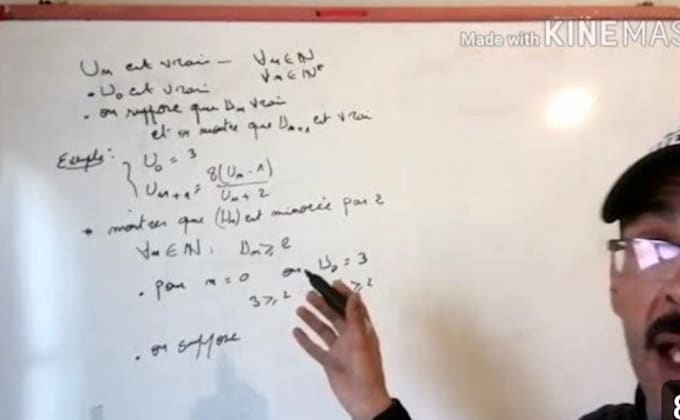 Made with KINEMAS
Un est vrai - ∀n∈ℕ
∀n∈ℕ*
• U0 est vrai
• on suppose que Un vrai
et on montre que Un+1 est vrai
Exemple :
U0 = 3
Un+1 = 8(Un - 1) / Un + 2
* montrer que (Un) est minorée par 2
∀n∈ℕ : Un ≥ 2
• pour n = 0 on U0 = 3
3 ≥ 2 ≥ 2
• on suppose